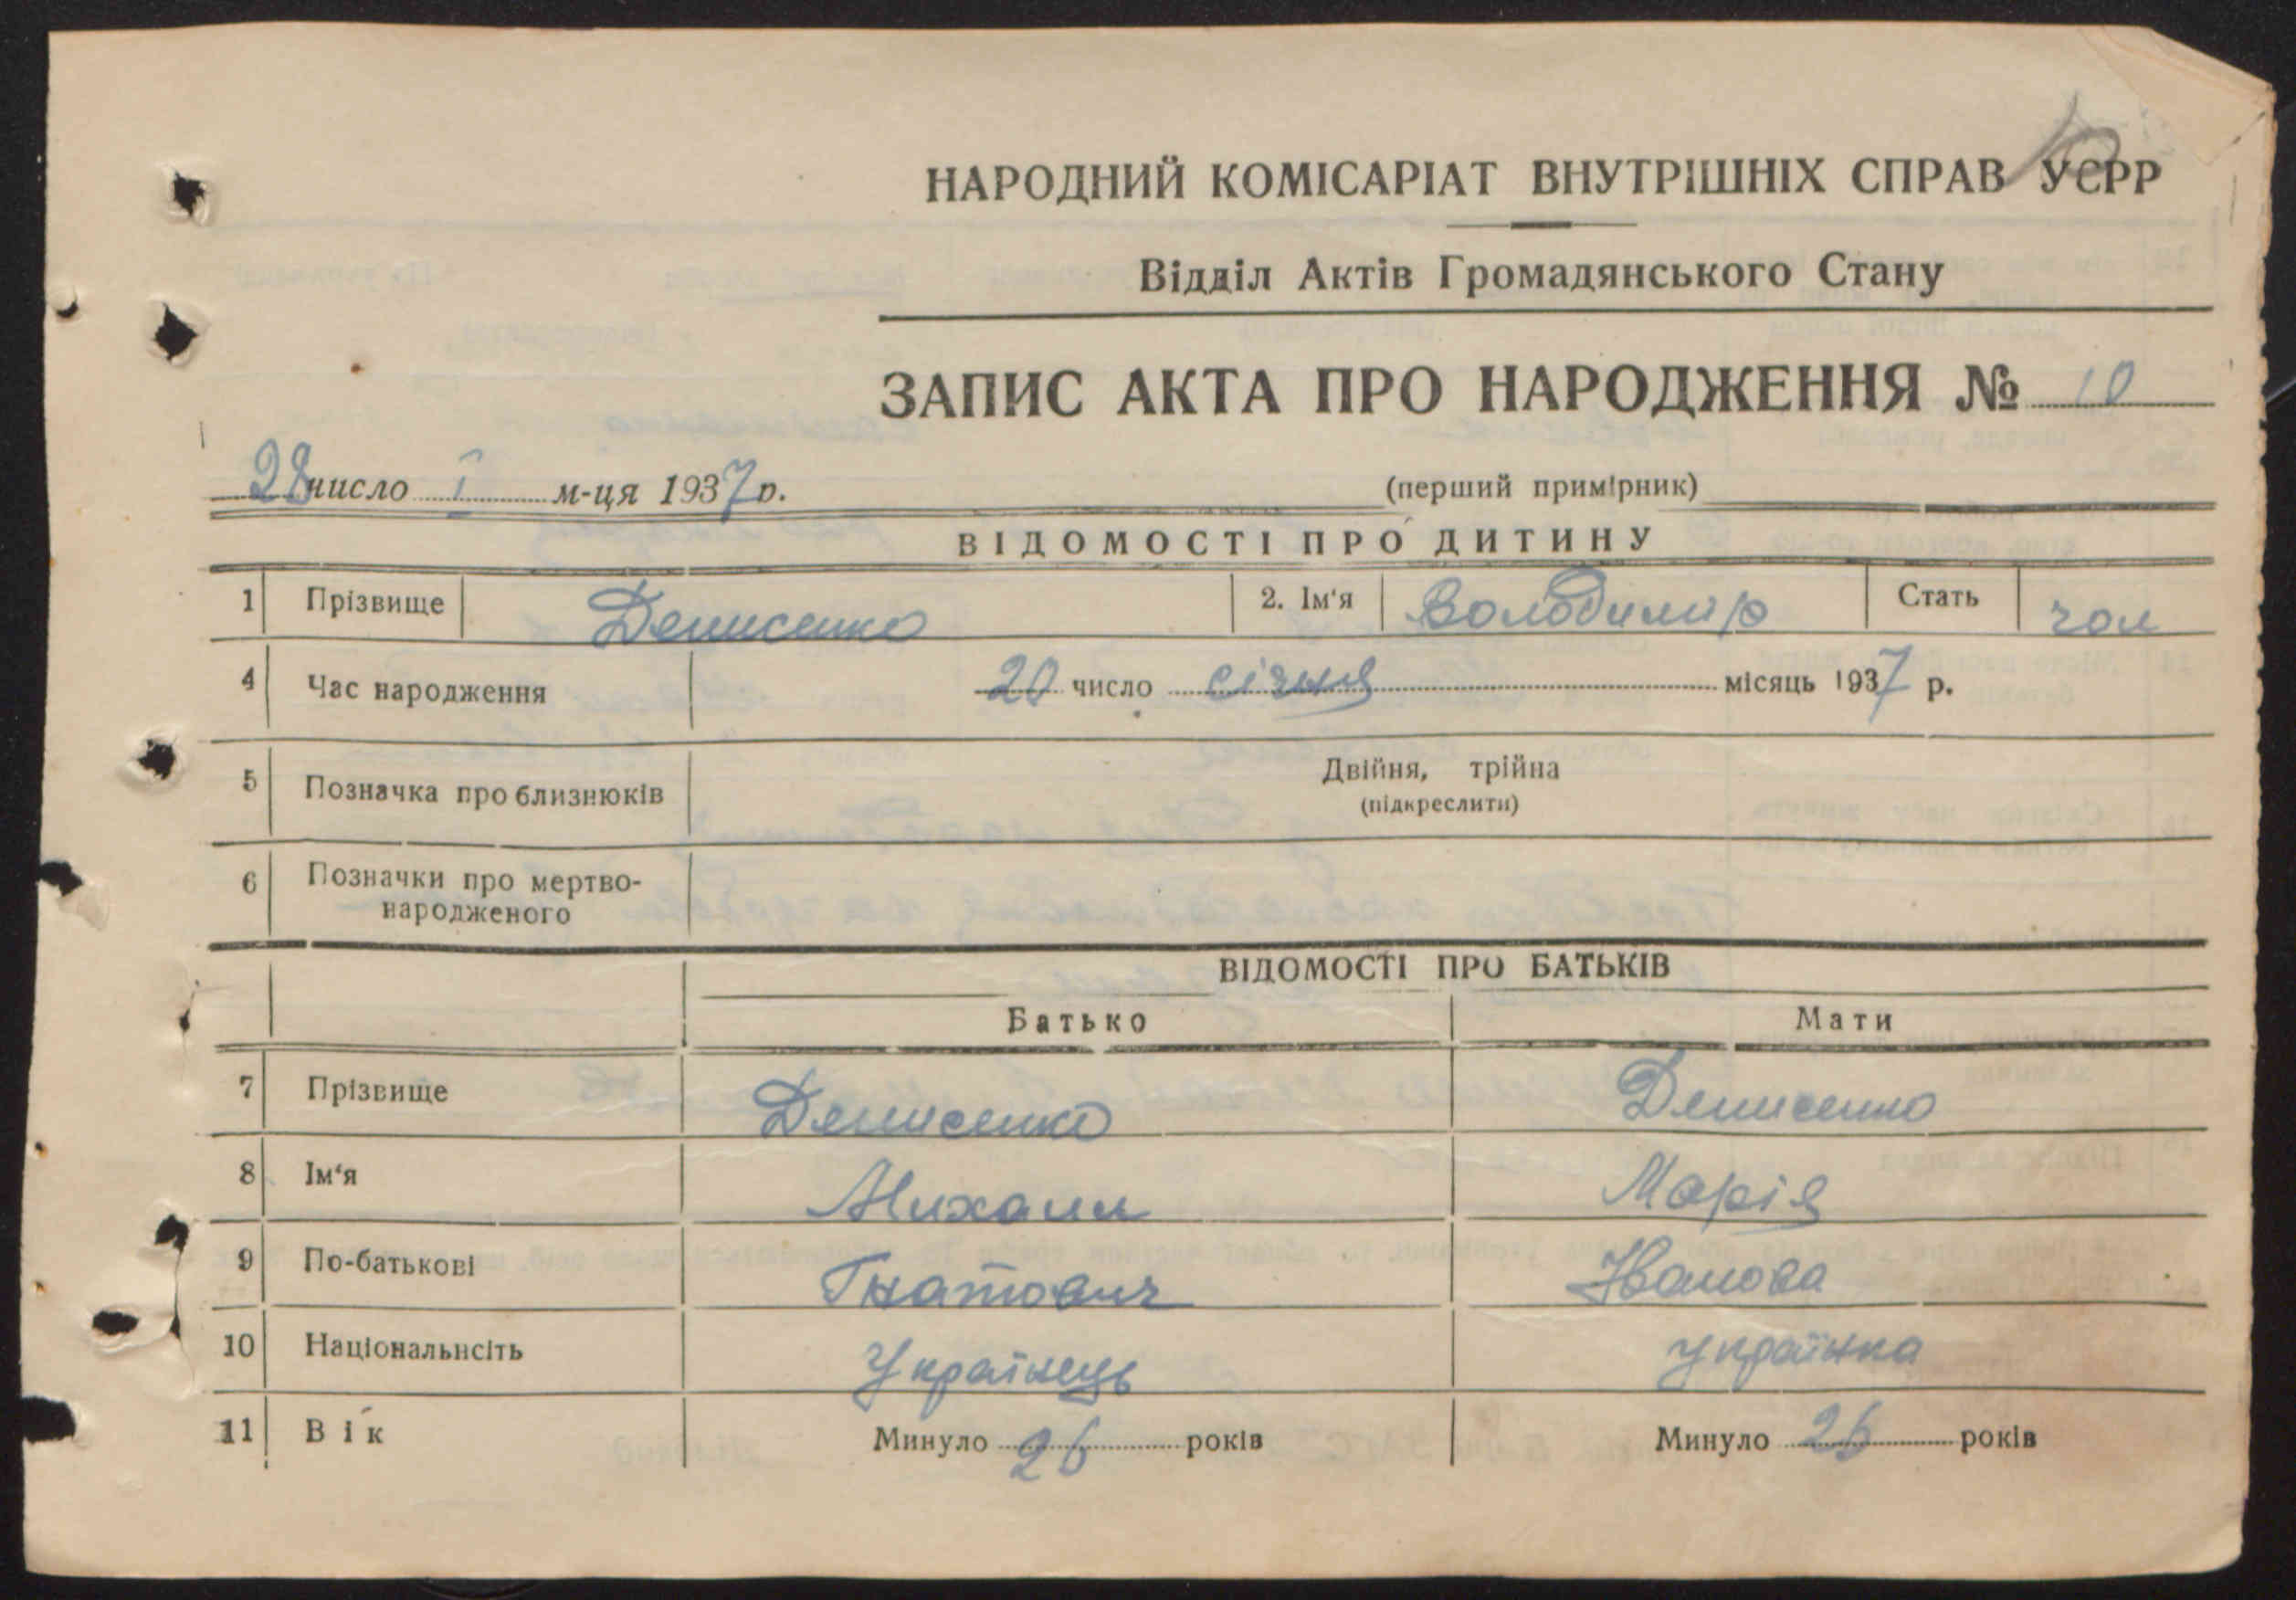 10
НАРОДНИЙ КОМІСАРІАТ ВНУТРІШНІХ СПРАВ УСРР
Відділ Актів Громадянського Стану
ЗАПИС АКТА ПРО НАРОДЖЕННЯ № 10
28 число I м-ця 1937 р.
(перший примірник)
ВІДОМОСТІ ПРО ДИТИНУ
1 Прізвище Денисенко 2. Ім'я Володимир Стать чол
4 Час народження 20 число січня місяць 1937 р.
5 Позначка про близнюків Двійня, трійна
(підкреслити)
6 Позначки про мертво-
народженого
ВІДОМОСТІ ПРО БАТЬКІВ
Батько Мати
7 Прізвище Денисенко Денисенко
8 Ім'я Михаил Марія
9 По-батькові Гнатович Іванова
10 Національнсіть Українець Українка
11 Вік Минуло 26 років Минуло 26 років